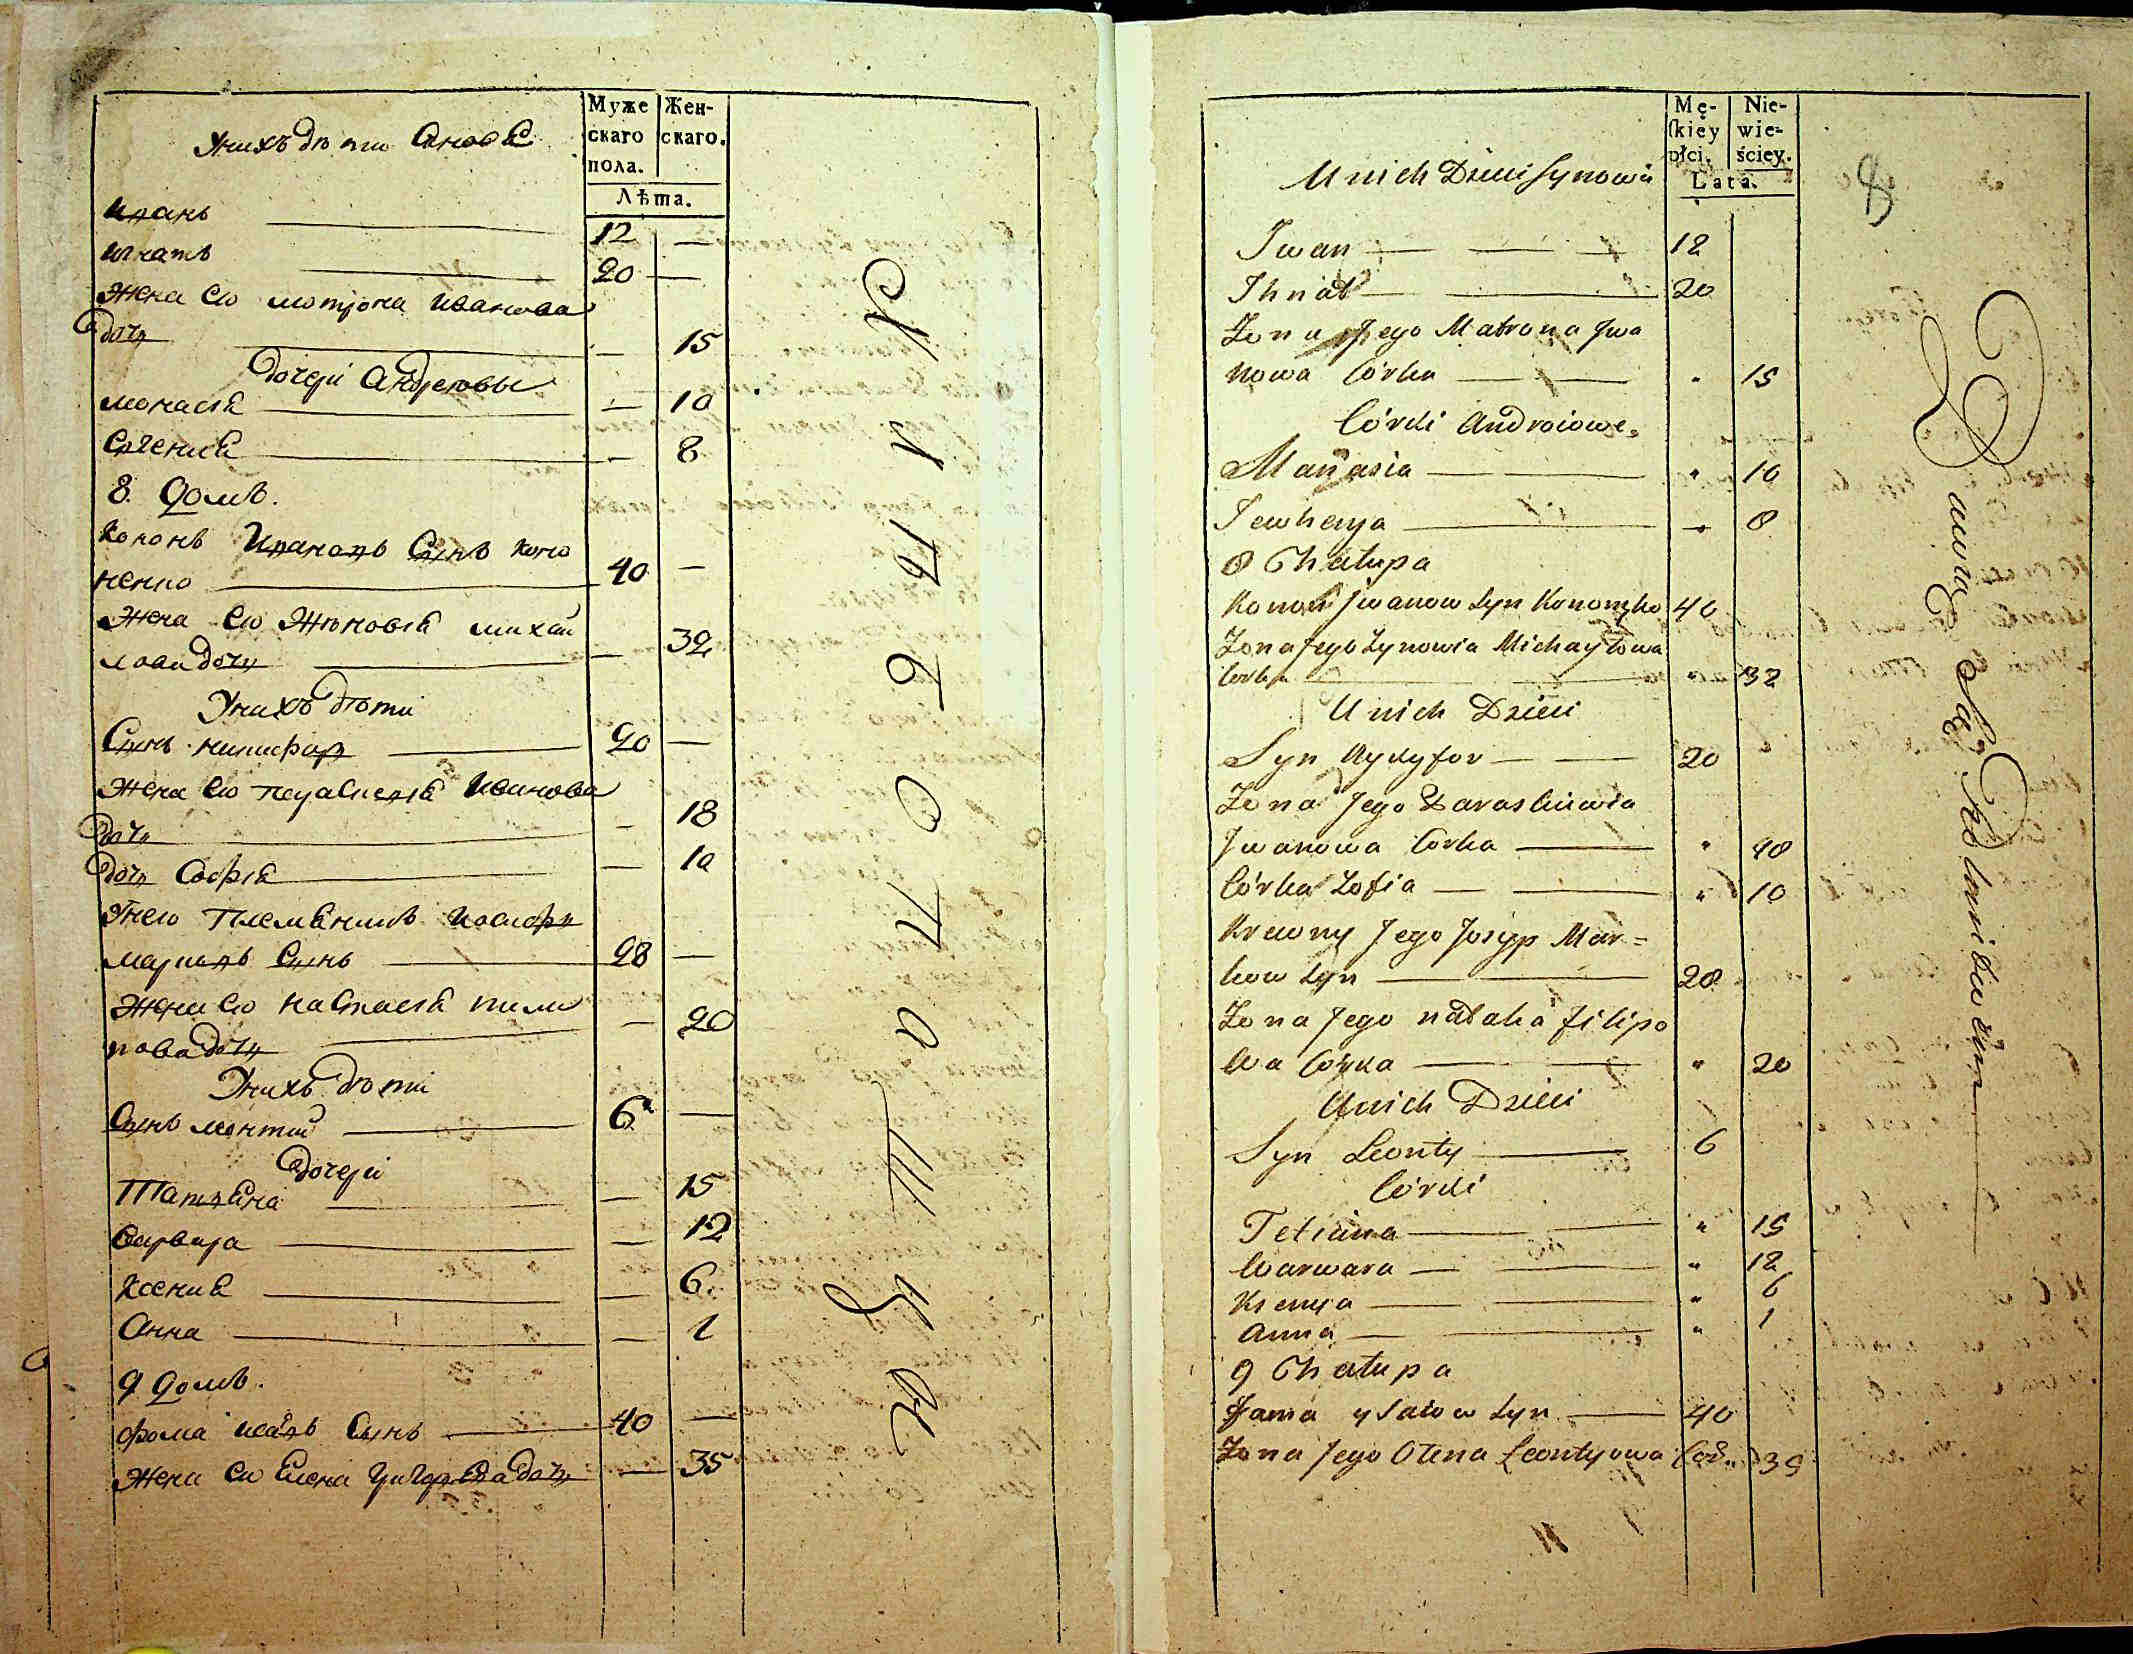 Муже скаго пола.
Жен- скаго.
Лѣта.
Унихъ дѣти Синове
Иванъ 12 —
Игнатъ 20 —
Жена Его мотрона Иванова
дочь — 15
дочери Андреювы
монасія — 10
Евгенія — 8
8. домъ.
Кононъ Ивановъ Сынъ Коно
ненко 40 —
Жена Его Жѣновія михай
лова дочь — 32
Унихъ дѣти
Сынъ никифоръ 20 —
Жена Его Параскевія Иванова
дочь — 18
дочь Софія — 10
Унего Племѣникъ Иосифъ
марковъ Сынъ 28 —
Жена Его Настасія пили
пова дочь — 20
Унихъ дѣти
Сынъ леонтий 6 —
дочери
Татѣяна — 15
Варвара — 12
Ксенія — 6
Анна — 1
9 домъ.
Фома Исаевъ Сынъ 40 —
Жена Ею Елена дочь — 35
Mę- ſkiey płci.
Nie- wie- ściey.
Lata.
8
U nich Dzieci synowie
Iwan 12
Ihnat 20
Zona Jego Matrona Iwa
nowa Córka " 15
Córki Androiowe
Manasia " 10
Jewhenya " 8
8 Chałupa
Konon Iwanow Syn Kononenko 40
Zona Jego Zynowia Michayłowa
Corka " 32
U nich Dzieci
Syn Nykyfor 20
Zona Jego Paraskiewia
Iwanowa Corka " 18
Córka Zofia " 10
Krewny Jego Josyp Mar=
kow Syn 28
Zona Jego natalia Filipo
wa Córka " 20
U nich Dzieci
Syn Leonty 6
Córki
Tetiana " 15
Warwara " 12
Ksenya " 6
Anna " 1
9 Chałupa
Foma ysaiow Syn 40
Zona Jego Olena Leontyowa Cor. 35